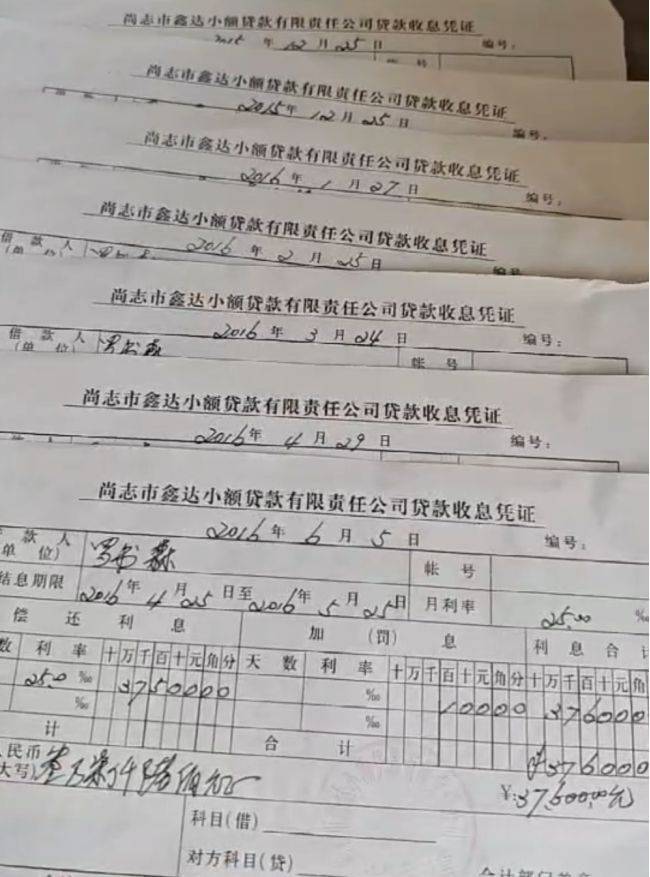 尚志市鑫达小额贷款有限责任公司贷款收息凭证
2015年12月25日 编号:
帐号
尚志市鑫达小额贷款有限责任公司贷款收息凭证
2015年12月25日 编号:
尚志市鑫达小额贷款有限责任公司贷款收息凭证
2016年1月27日 编号:
尚志市鑫达小额贷款有限责任公司贷款收息凭证
2016年2月25日 编号
借款人
尚志市鑫达小额贷款有限责任公司贷款收息凭证
2016年3月24日 编号:
借款人
(单位) 罗书森 帐号
尚志市鑫达小额贷款有限责任公司贷款收息凭证
2016年4月29日 编号:
尚志市鑫达小额贷款有限责任公司贷款收息凭证
2016年6月5日 编号:
款人
单位) 罗书森 帐号
结息期限 2016年4月25日至2016年5月25日 月利率 25.00 ‰
偿还利息 加(罚)息 利息合计
数 利率 十万千百十元角分 天数 利率 十万千百十元角分 十万千百十元角
25.0 ‰ 3750000 ‰ 10000 376000
‰ ‰
计 合计 ¥376000
人民币
大写) 叁万柒仟陆佰元 ¥:37,600.00元
科目(借)
对方科目(贷)